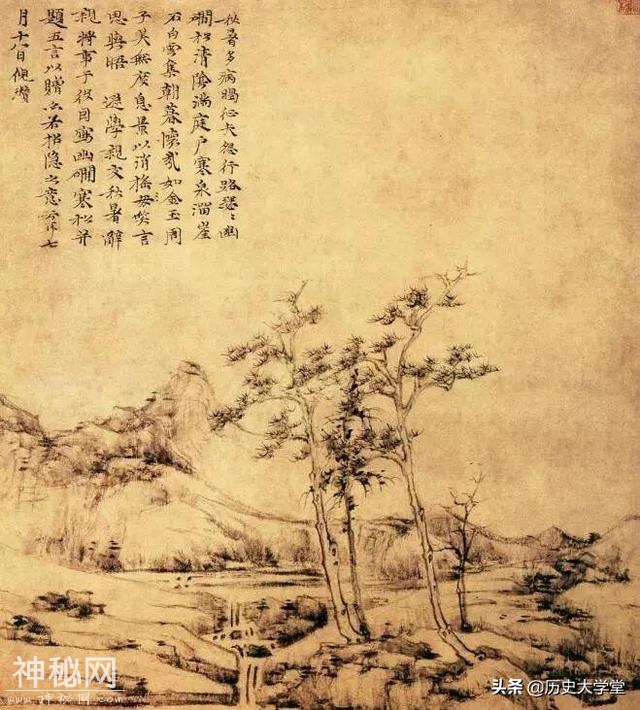 秋暑多病暍征夫怨行路瑟〻幽
磵松清陰滿庭戶寒泉溜崖
石白雲集朝暮懷哉如金玉周
子美無度息景以消搖笑言
思與晤 遜學親友秋暑辭
親將事于役因寫幽磵寒松并
題五言以贈亦若招隱之意云耳七
月十八日倪瓚
神秘网
头条 @历史大学堂